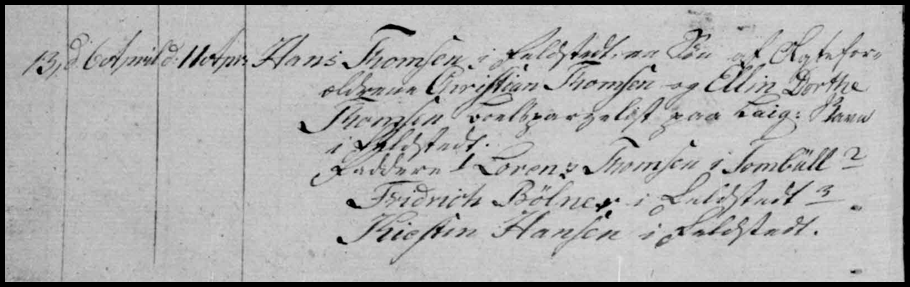 13, d. 6 April d. 11 Apr: Hans Thomsen i Feldstedt, en Søn af Ægtefor-
ældrene Christian Thomsen og Ellin Dorthe
Thomsen paa
i Feldstedt.
Faddere 1 Lorenz Thomsen i Tombüll 2
Fridrich Bölner i Feldstedt 3
Kiestin Hansen i Feldstedt.